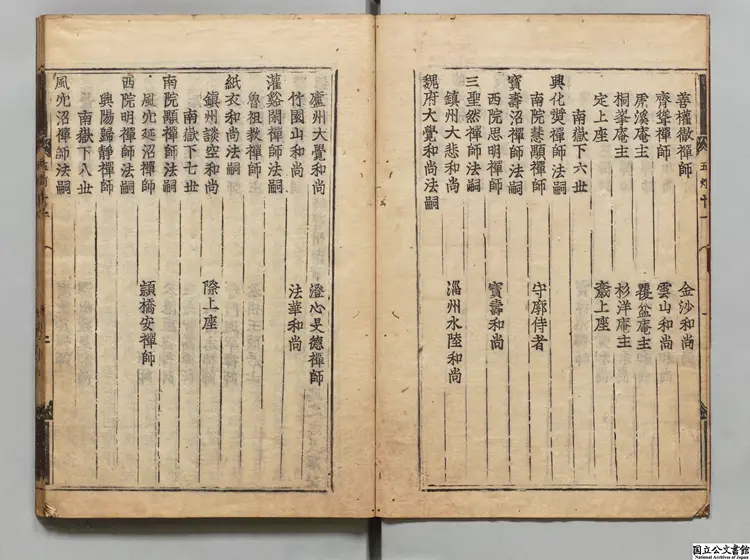 善權徹禪師 金沙和尚
齊聳禪師 雲山和尚
虎溪庵主 覆盆庵主
桐峯庵主 杉洋庵主
定上座 奯上座
南嶽下六世
興化奬禪師法嗣
南院慧顒禪師 守廓侍者
寶壽沼禪師法嗣
西院思明禪師 寶壽和尚
三聖然禪師法嗣
鎮州大悲和尚 淄州水陸和尚
魏府大覺和尚法嗣
廬州大覺和尚 澄心旻德禪師
竹園山和尚 法華和尚
灌谿閑禪師法嗣
魯祖教禪師
紙衣和尚法嗣
鎮州談空和尚 際上座
南嶽下七世
南院顒禪師法嗣
風穴延沼禪師 頴橋安禪師
西院明禪師法嗣
興陽歸靜禪師
南嶽下八世
風穴沼禪師法嗣
五灯十一
国立公文書館
National Archives of Japan